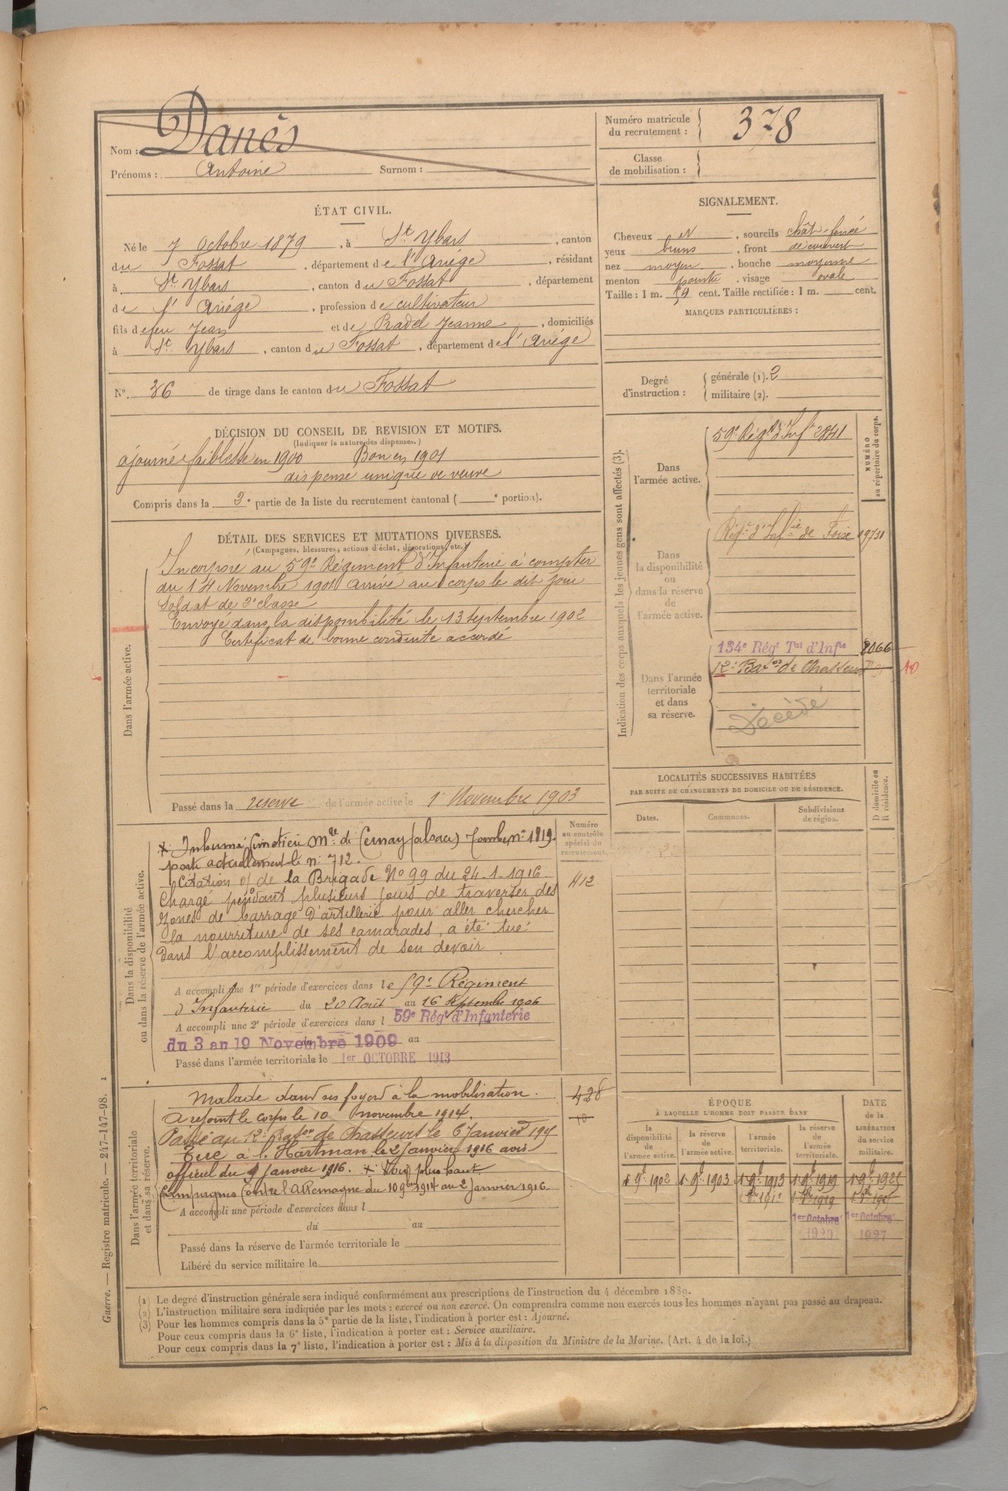 Nom : Danès
Prénoms : Antoine Surnom :
Numéro matricule du recrutement : 378
Classe de mobilisation :
ÉTAT CIVIL.
Né le 7 Octobre 1879, à St Ybars, canton
du Fossat, département de l'Ariège, résidant
à St Ybars, canton du Fossat, département
de l'Ariège, profession de cultivateur
fils de feu Jean et de Pradel Jeanne, domiciliés
à St Ybars, canton du Fossat, département de l'Ariège
N° 36 de tirage dans le canton du Fossat
SIGNALEMENT.
Cheveux et, sourcils chât-foncé
yeux bruns, front découvert
nez moyen, bouche moyenne
menton pointu, visage ovale
Taille : 1 m. 59 cent. Taille rectifiée : 1 m. cent.
MARQUES PARTICULIÈRES :
Degré d'instruction : générale (1). 2
militaire (2).
DÉCISION DU CONSEIL DE REVISION ET MOTIFS.
(Indiquer la nature des dispenses.)
ajourné faiblesse en 1900 Bon en 1901
dispensé unique de veuve
Compris dans la 3e partie de la liste du recrutement cantonal ( e portion).
DÉTAIL DES SERVICES ET MUTATIONS DIVERSES.
(Campagnes, blessures, actions d'éclat, décorations, etc.)
Dans l'armée active.
Incorporé au 59e Régiment d'Infanterie à compter
du 14 Novembre 1901 arrivé au corps le dit jour
Soldat de 2e classe
Envoyé dans la disponibilité le 13 septembre 1902
Certificat de bonne conduite accordé
Passé dans la réserve de l'armée active le 1 Novembre 1903
Indication des corps auxquels les jeunes gens sont affectés (3).
NUMÉRO au répertoire du corps.
Dans l'armée active.
59e Régt d'Inf 2841
Dans la disponibilité ou dans la réserve de l'armée active.
Régt d'Infie de Foix 19731
Dans l'armée territoriale et dans sa réserve.
134e Régt Tal d'Infie 2066
12e Baton de Chasseurs 10
Décédé
LOCALITÉS SUCCESSIVES HABITÉES
PAR SUITE DE CHANGEMENTS DE DOMICILE OU DE RÉSIDENCE.
Dates. Communes. Subdivisions de région. D domicile ou R résidence.
Numéro au contrôle spécial du recrutement.
412
Dans la disponibilité ou dans la réserve de l'armée active.
x Inhumé Cimetière Mre de Cernay (Alsace) Tombe n° 1819.
porte actuellement le n° 712.
Citation O/ de la Brigade N° 99 du 24-1-1916
Chargé pendant plusieurs jours de traverser des
zones de barrage d'artillerie pour aller chercher
la nourriture de ses camarades, a été tué
dans l'accomplissement de son devoir.
A accompli une 1re période d'exercices dans le 59e Régiment
d'Infanterie du 20 Août au 16 Septembre 1906
A accompli une 2e période d'exercices dans l 59e Régt d'Infanterie
du 3 au 19 Novembre 1909 au
Passé dans l'armée territoriale le 1er OCTOBRE 1913
Dans l'armée territoriale et dans sa réserve.
Malade dans ses foyers à la mobilisation. 428
A rejoint le corps le 10 novembre 1914.
Passé au 12e Baton de Chasseurs le 6 Janvier 191
Tué à l'Hartman le 2 Janvier 1916 avis
officiel du 9 Janvier 1916. x Voir plus haut
Campagnes Contre l'Allemagne du 10 9bre 1914 au 2 Janvier 1916
A accompli une période d'exercices dans l
du au
Passé dans la réserve de l'armée territoriale le
Libéré du service militaire le
ÉPOQUE
À LAQUELLE L'HOMME DOIT PASSER DANS
DATE de la LIBÉRATION du service militaire.
la disponibilité de l'armée active. la réserve de l'armée active. l'armée territoriale. la réserve de l'armée territoriale.
1 9e 1902 1 9e 1903 1 9e 1913 1 9e 1919
1er Octobre 1er Octobre
1920 1927
(1) Le degré d'instruction générale sera indiqué conformément aux prescriptions de l'instruction du 4 décembre 1889.
(2) L'instruction militaire sera indiquée par les mots : exercé ou non exercé. On comprendra comme non exercés tous les hommes n'ayant pas passé au drapeau.
(3) Pour les hommes compris dans la 5e partie de la liste, l'indication à porter est : Ajourné.
Pour ceux compris dans la 6e liste, l'indication à porter est : Service auxiliaire.
Pour ceux compris dans la 7e liste, l'indication à porter est : Mis à la disposition du Ministre de la Marine. (Art. 4 de la loi.)
Guerre. — Registre matricule. — 247-147-98. 1